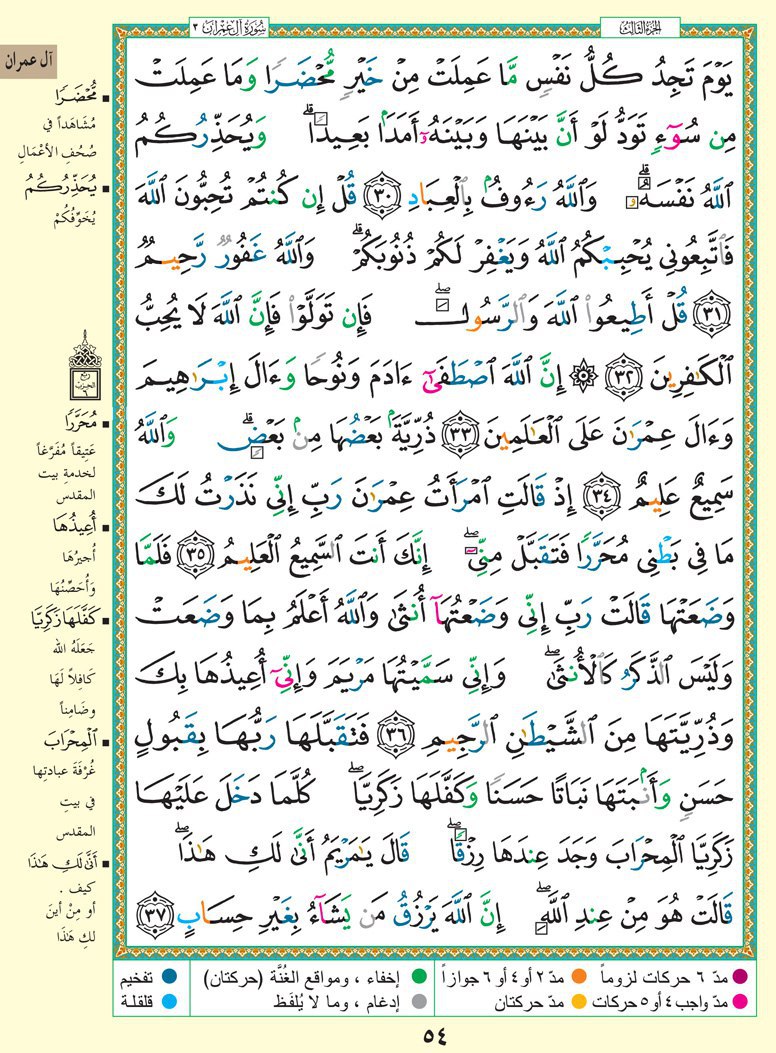 سُورَةُ آلِ عِمْرَان ٣
الجُزْءُ الثَّالِثُ
يَوْمَ تَجِدُ كُلُّ نَفْسٍ مَّا عَمِلَتْ مِنْ خَيْرٍ مُّحْضَرًا وَمَا عَمِلَتْ
مِن سُوٓءٍ تَوَدُّ لَوْ أَنَّ بَيْنَهَا وَبَيْنَهُۥٓ أَمَدَۢا بَعِيدًا ۗ وَيُحَذِّرُكُمُ
ٱللَّهُ نَفْسَهُۥ ۗ وَٱللَّهُ رَءُوفٌۢ بِٱلْعِبَادِ ﴿٣٠﴾ قُلْ إِن كُنتُمْ تُحِبُّونَ ٱللَّهَ
فَٱتَّبِعُونِى يُحْبِبْكُمُ ٱللَّهُ وَيَغْفِرْ لَكُمْ ذُنُوبَكُمْ ۗ وَٱللَّهُ غَفُورٌ رَّحِيمٌ
﴿٣١﴾ قُلْ أَطِيعُوا۟ ٱللَّهَ وَٱلرَّسُولَ ۖ فَإِن تَوَلَّوْا۟ فَإِنَّ ٱللَّهَ لَا يُحِبُّ
ٱلْكَـٰفِرِينَ ﴿٣٢﴾ ۞ إِنَّ ٱللَّهَ ٱصْطَفَىٰٓ ءَادَمَ وَنُوحًا وَءَالَ إِبْرَٰهِيمَ
وَءَالَ عِمْرَٰنَ عَلَى ٱلْعَـٰلَمِينَ ﴿٣٣﴾ ذُرِّيَّةًۢ بَعْضُهَا مِنۢ بَعْضٍ ۗ وَٱللَّهُ
سَمِيعٌ عَلِيمٌ ﴿٣٤﴾ إِذْ قَالَتِ ٱمْرَأَتُ عِمْرَٰنَ رَبِّ إِنِّى نَذَرْتُ لَكَ
مَا فِى بَطْنِى مُحَرَّرًا فَتَقَبَّلْ مِنِّىٓ ۖ إِنَّكَ أَنتَ ٱلسَّمِيعُ ٱلْعَلِيمُ ﴿٣٥﴾ فَلَمَّا
وَضَعَتْهَا قَالَتْ رَبِّ إِنِّى وَضَعْتُهَآ أُنثَىٰ وَٱللَّهُ أَعْلَمُ بِمَا وَضَعَتْ
وَلَيْسَ ٱلذَّكَرُ كَٱلْأُنثَىٰ ۖ وَإِنِّى سَمَّيْتُهَا مَرْيَمَ وَإِنِّىٓ أُعِيذُهَا بِكَ
وَذُرِّيَّتَهَا مِنَ ٱلشَّيْطَـٰنِ ٱلرَّجِيمِ ﴿٣٦﴾ فَتَقَبَّلَهَا رَبُّهَا بِقَبُولٍ
حَسَنٍ وَأَنۢبَتَهَا نَبَاتًا حَسَنًا وَكَفَّلَهَا زَكَرِيَّا ۖ كُلَّمَا دَخَلَ عَلَيْهَا
زَكَرِيَّا ٱلْمِحْرَابَ وَجَدَ عِندَهَا رِزْقًا ۖ قَالَ يَـٰمَرْيَمُ أَنَّىٰ لَكِ هَـٰذَا ۖ
قَالَتْ هُوَ مِنْ عِندِ ٱللَّهِ ۖ إِنَّ ٱللَّهَ يَرْزُقُ مَن يَشَآءُ بِغَيْرِ حِسَابٍ ﴿٣٧﴾
آل عمران
مُّحْضَرًا
مُشَاهَداً في
صُحُفِ الأَعْمَالِ
يُحَذِّرُكُمُ
يُخَوِّفُكُمْ
ربع
الحزب
٦
مُحَرَّرًا
عَتِيقاً مُفَرَّغاً
لخدمةِ بيت
المقدس
أُعِيذُهَا
أُجِيرُهَا
وَأُحَصِّنُهَا
كَفَّلَهَا زَكَرِيَّا
جَعَلَهُ الله
كَافِلاً لَهَا
وضَامِناً
ٱلْمِحْرَابَ
غُرْفَةَ عبادتِها
في بيتِ
المقدس
أَنَّىٰ لَكِ هَـٰذَا
كيف .
أو مِنْ أينَ
لكِ هَذَا
مدّ ٦ حركات لزوماً
مدّ ٢ أو ٤ أو ٦ جوازاً
إخفاء ، ومواقع الغُنَّة (حركتان)
تفخيم
مدّ واجب ٤ أو ٥ حركات
مدّ حركتان
إدغام ، وما لا يُلفَظ
قلقلة
٥٤